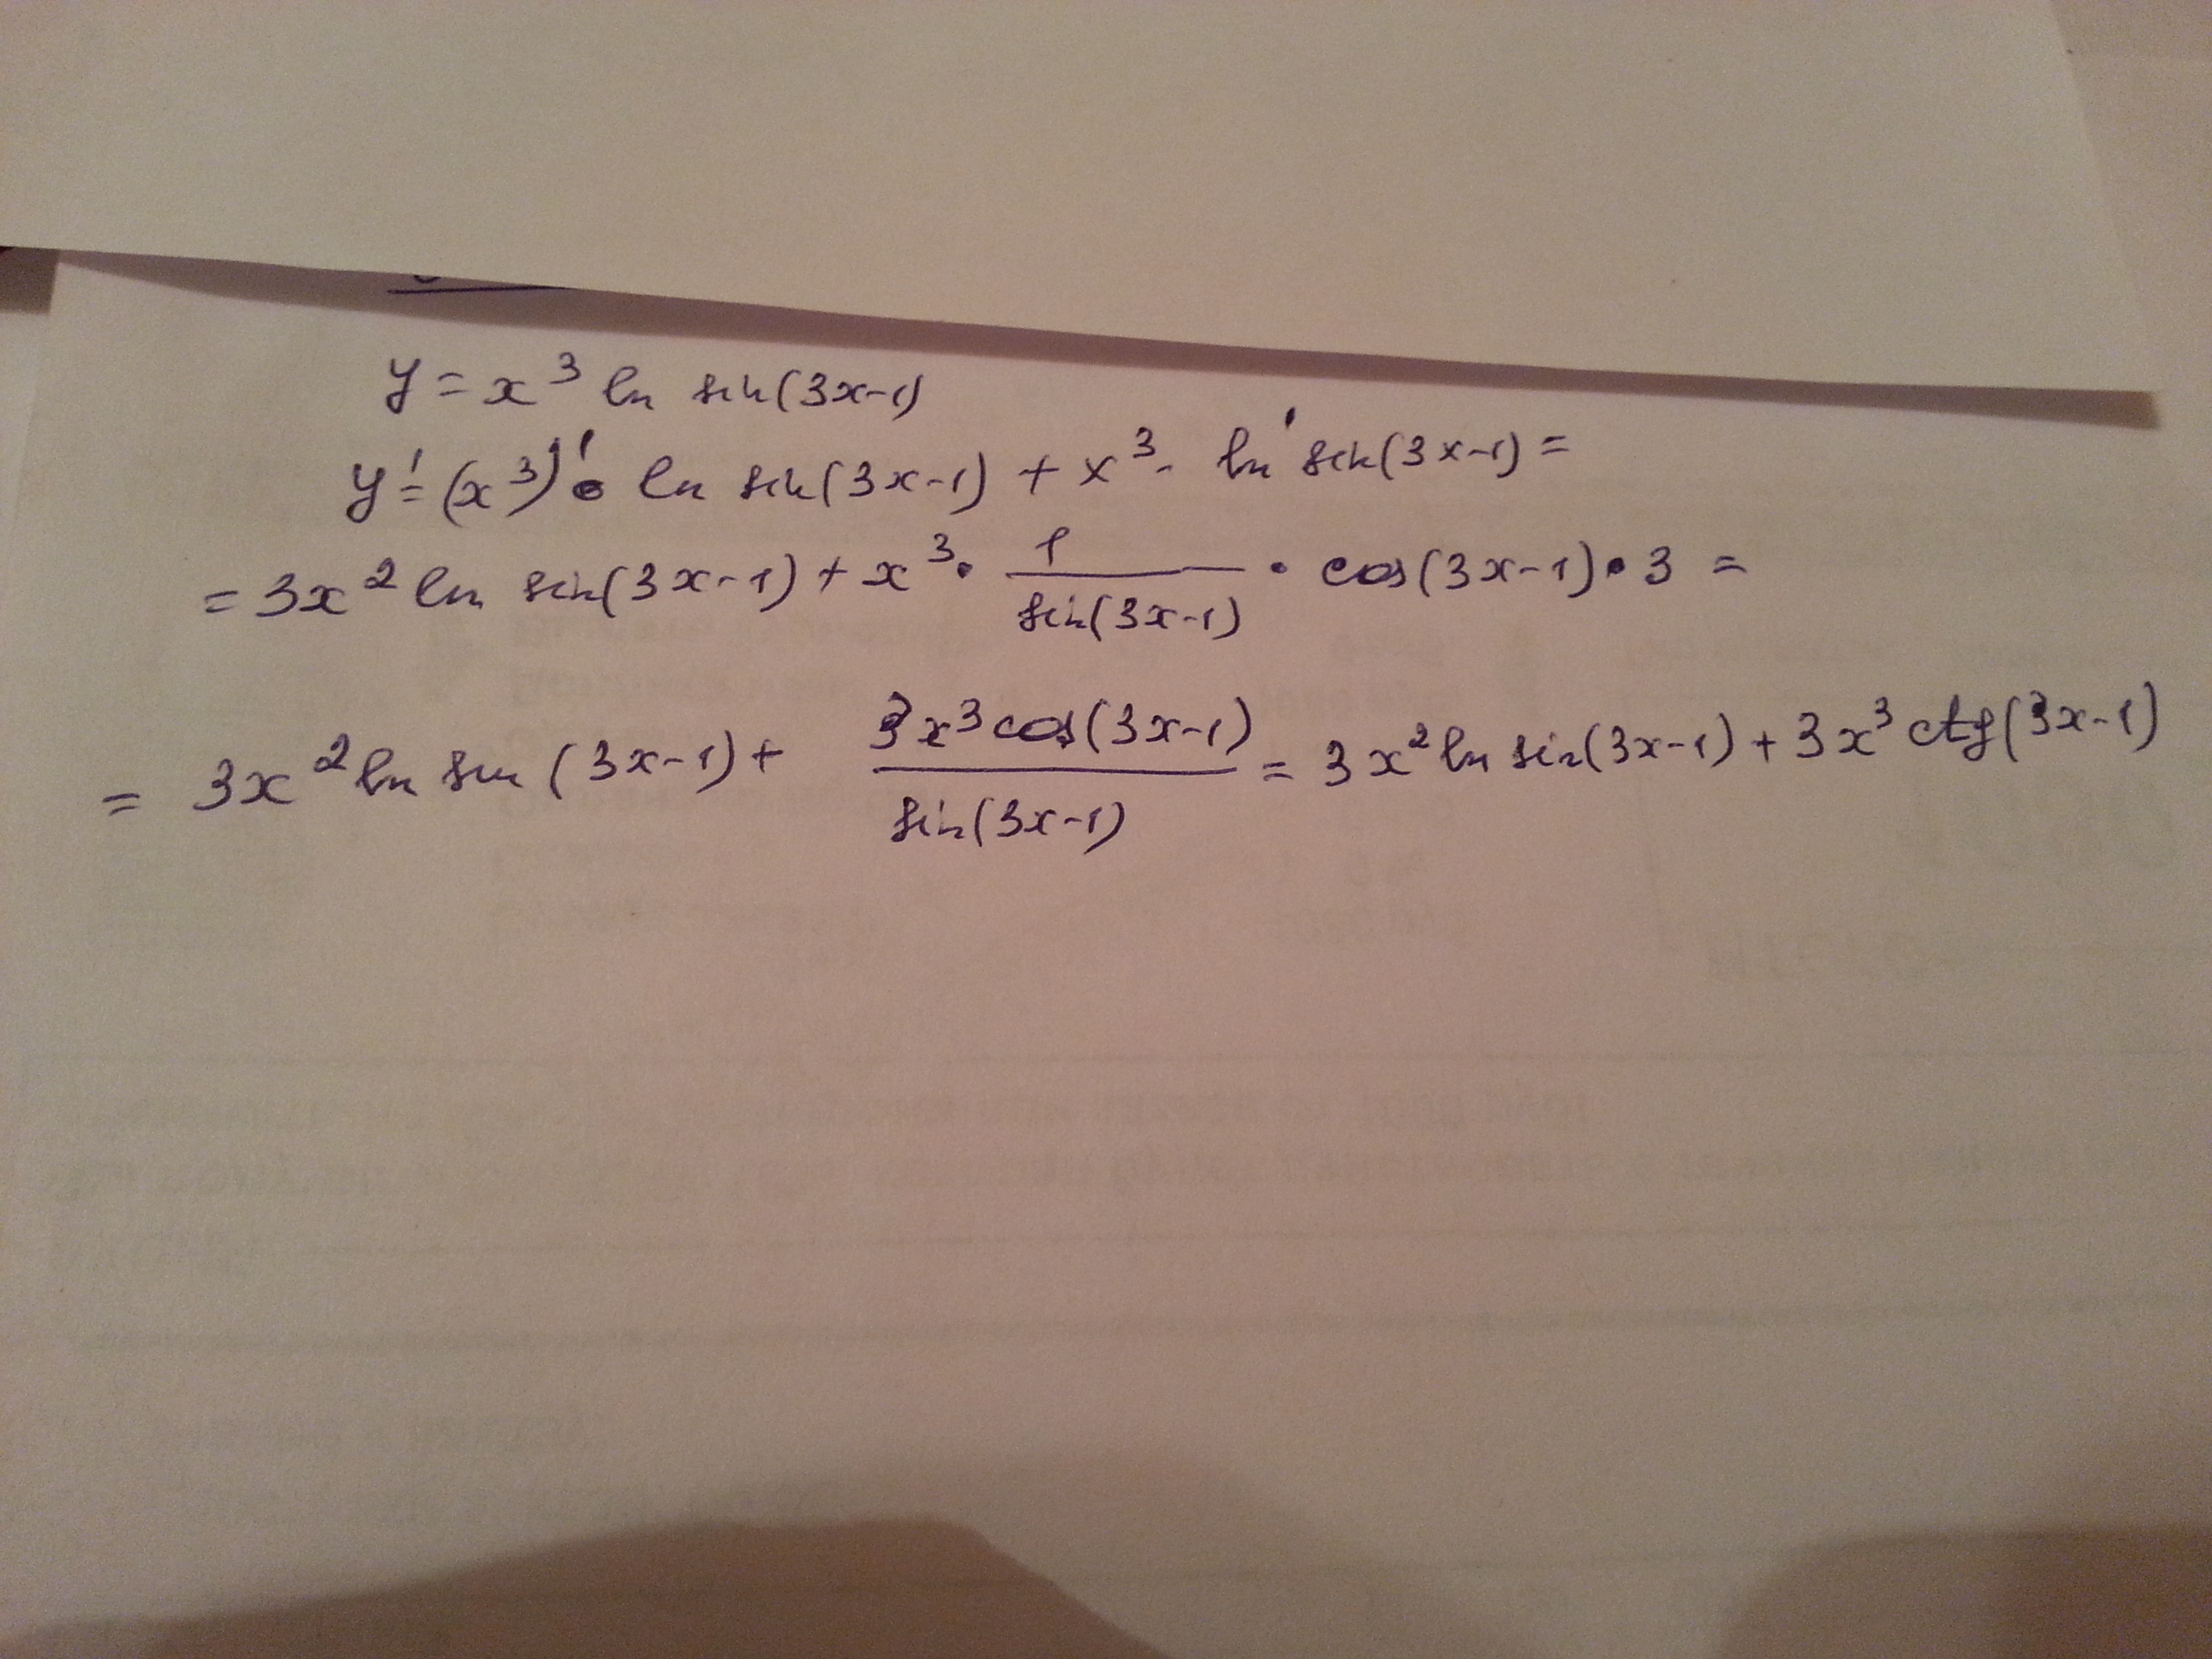 y = x³ ln sin(3x-1)
y' = (x³)' • ln sin(3x-1) + x³ · ln' sin(3x-1) =
= 3x² ln sin(3x-1) + x³ · 1/sin(3x-1) · cos(3x-1) · 3 =
= 3x² ln sin (3x-1) + 3x³ cos(3x-1)/sin(3x-1) = 3x² ln sin(3x-1) + 3x³ ctg(3x-1)